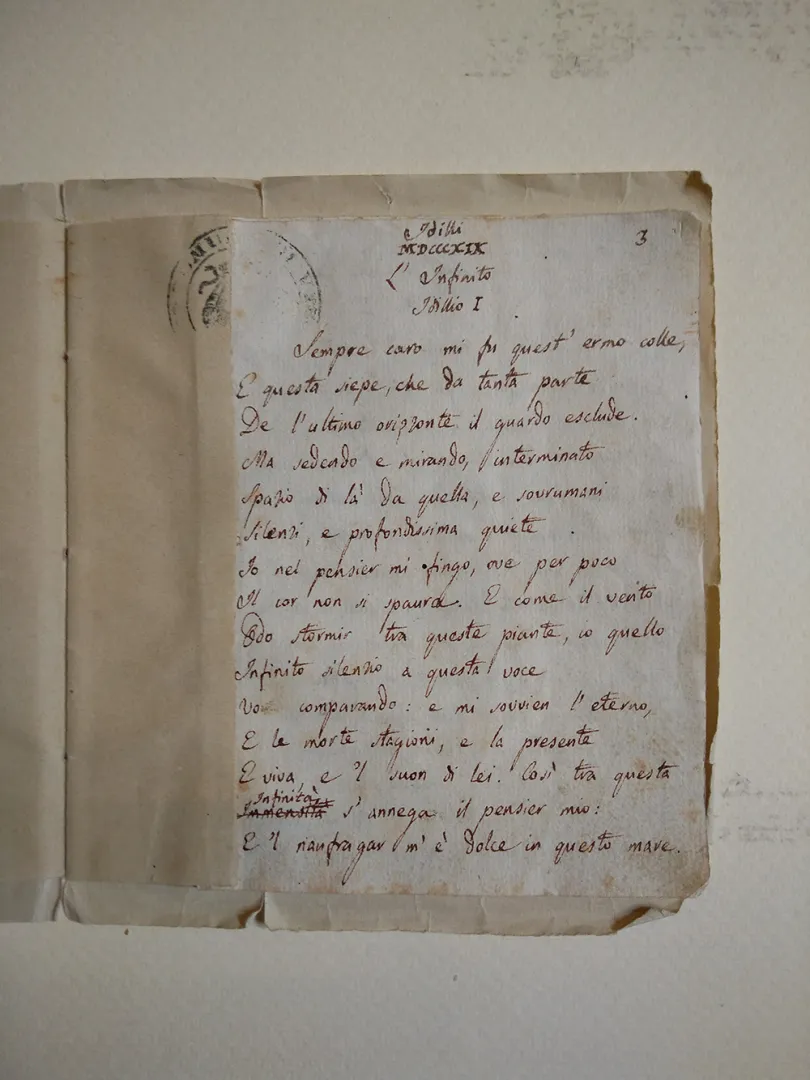 Idilli
MDCCCXIX
3
L' Infinito
Idillio I
Sempre caro mi fu quest' ermo colle,
E questa siepe, che da tanta parte
De l'ultimo orizzonte il guardo esclude.
Ma sedendo e mirando, interminato
Spazio di là da quella, e sovrumani
Silenzi, e profondissima quiete
Io nel pensier mi fingo, ove per poco
Il cor non si spaura. E come il vento
Odo stormir tra queste piante, io quello
Infinito silenzio a questa voce
Vo comparando: e mi sovvien l'eterno,
E le morte stagioni, e la presente
E viva, e 'l suon di lei. Così tra questa
Infinità
Immensità s' annega il pensier mio:
E 'l naufragar m' è dolce in questo mare.